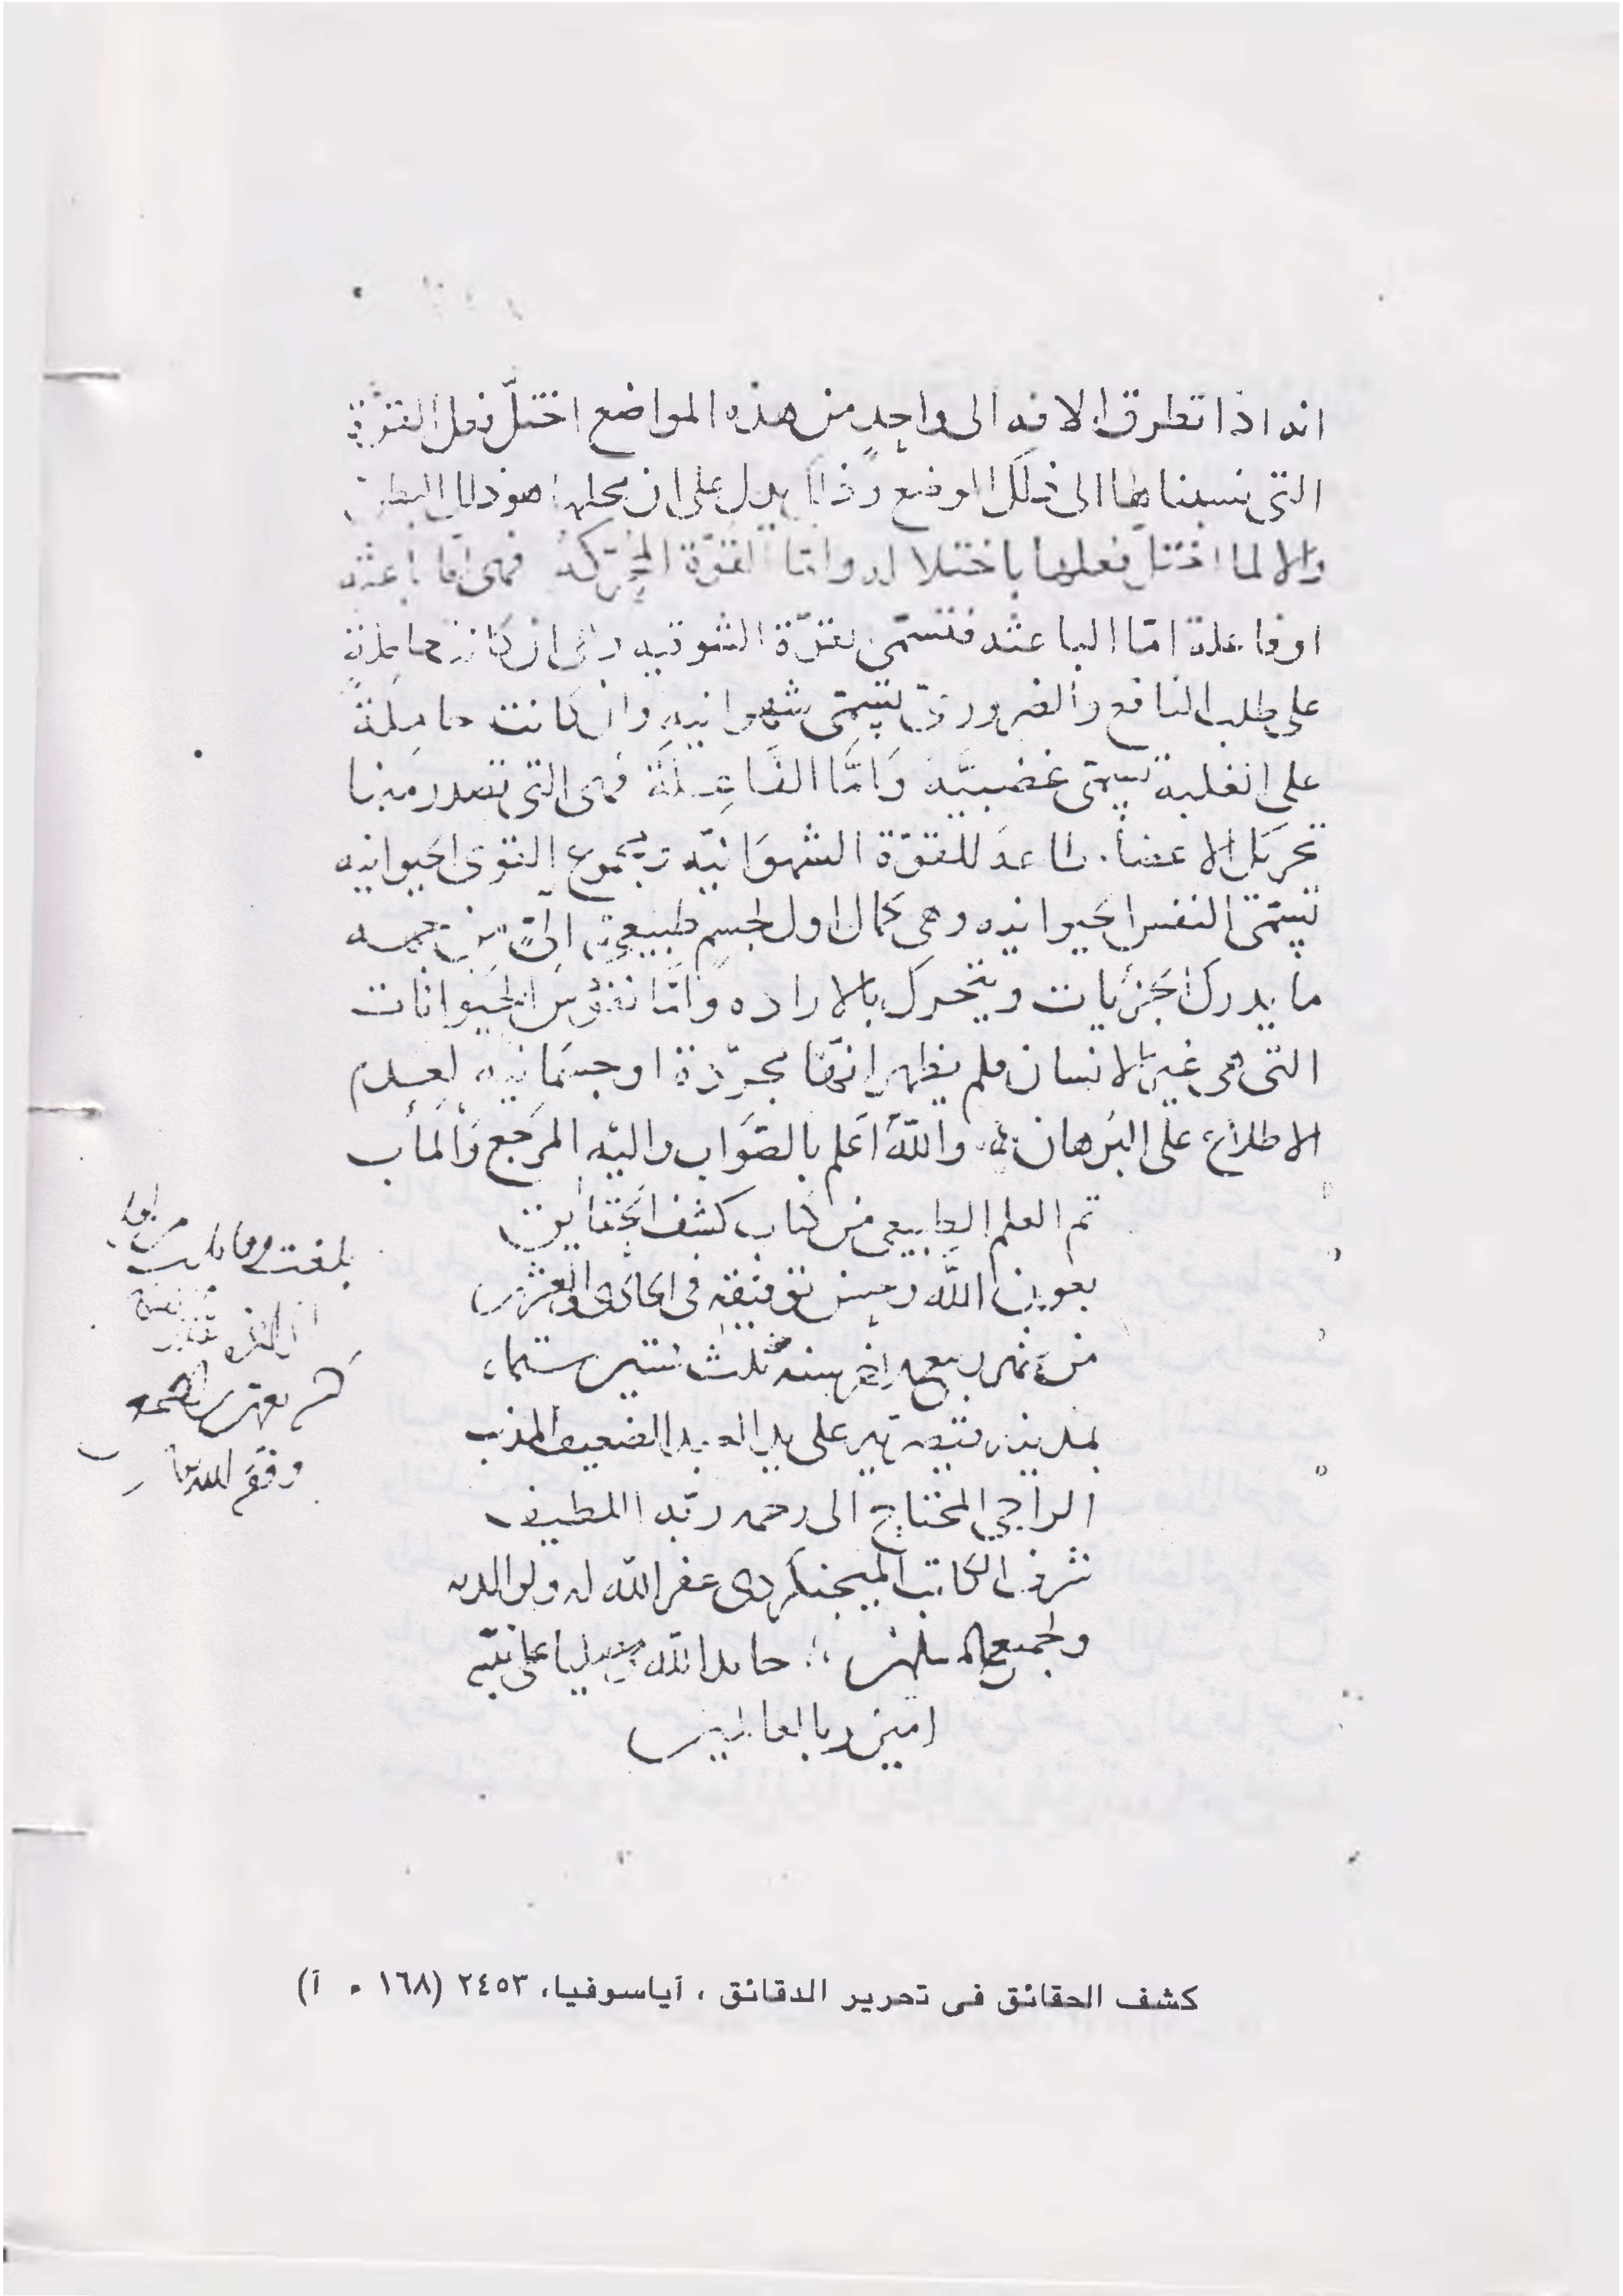 انه اذا تطرق الافه الى واحدٍ من هذه المواضع اختلّ فعل القوّة
التى نسبناها الى ذلك الموضع وذلك يدل على ان محلها هو ذلك البطن
والا لما اختلّ فعلها باختلاله وامّا القوّة المحرّكة فهى امّا باعثه
او فاعلة امّا الباعثه فتسمّى بقوّة الشوقيه وهى ان كانت حاملةً
على طلب النافع والضرورىّ تسمّى شهوانيه وان كانت حاملةً
على الغلبة تسمّى غضبيّه وَامّا الفَاعِلَة فهى التى تصدر منها
تحريك الاعضاء طاعة للقوّة الشهوَانيّه ومجموع القوى الحيوانيه
تسمّى النفس الحيوانيه وهى كمال اول لجسمٍ طبيعىّ آلىّ من جهه
ما يدرك الجزئيات ويتحرك بالاراده وَامّا نفوس الحيوانات
التى هى غير الانسان فلم يظهر انّها مجرّدة او جسمَانيه لعدم
الاطلاع على البُرهان فيه واللّه اَعلم بالصّوَاب واليّه المرَجع وَالمأب
تم العلم الطبيعى من كتاب كشف الحقايق
بعون اللّه وحسن توفيقه فى الحادى والعشرين
من شهر ربيع الاخر سنه ثلث ستين وستماء
بمدينه قيصريه على يد العبد الضعيف المذنب
الراجي المحتاج الى رحمه ربّه اللطيف
شرف الكاتب الميجنكردى عفر اللّه له ولوالديه
ولجميع المسلمين حامدا للّه ومصليا على نبيّه
امين رب العالمين
بلغت مقابلت
وفقه الله
كشف الحقائق فى تحرير الدقائق ، آياسوفيا، ٢٤٥٣ (١٦٨ ـ آ)